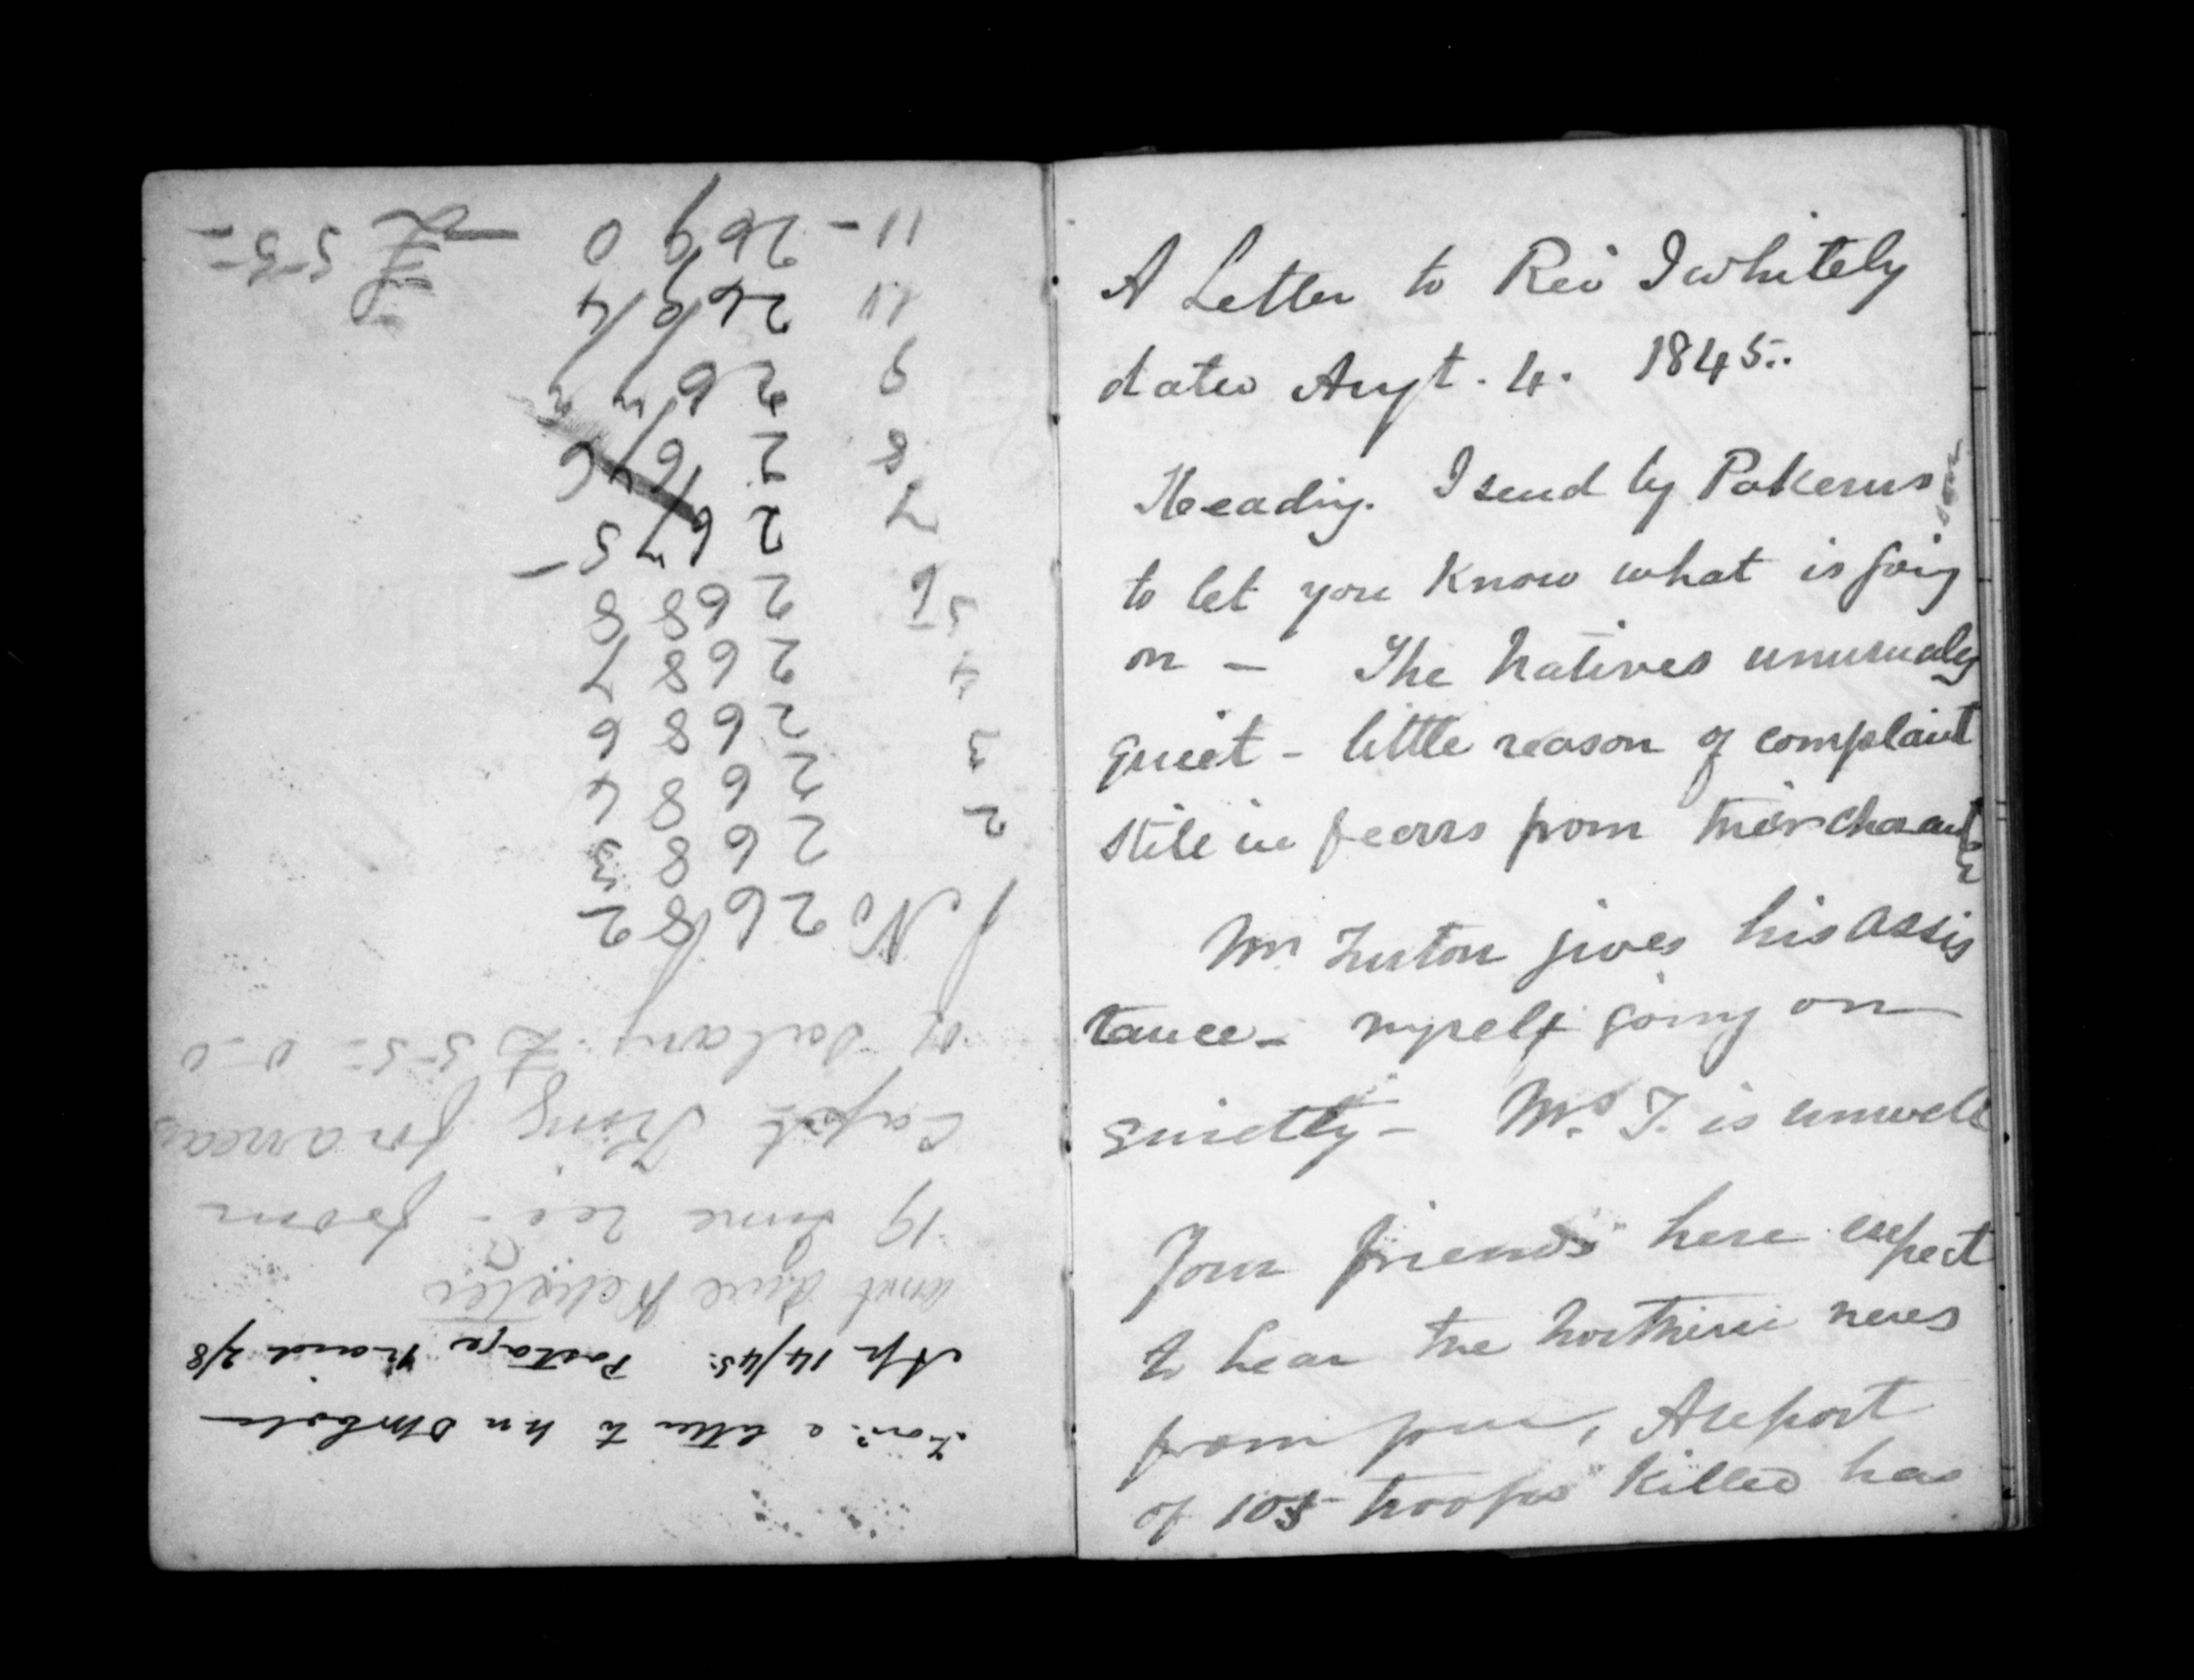 For. a letter to Mr
Ap 14/45. Postage Paid 2/8
and Live
19 June Rec- from
Capt King for arrears
of Salary. £ 5-5= 0-0
1 No 26 8 2
2 26 8 3
26 8 4
3 26 8 6
4 26 8 7
5 6 26 8 8
7 26 7 5 -
8 26 7 6
9 26
10 26 9 4
11 - 26 9 0 £ 5-5-
A Letter to Rev I whitely
dated Augt. 4. 1845..
Heading. I send by Pakerus son
to let you Know what is goig
on — The Natives unusualy
quiet - little reason of complaint
still in fears from Merchants
Mr Turton gives his assis
tance - myself going on
quietly - Mrs T. is unwell
Your friends here expect
to hear the Northern news
from you, A report
of 105 troops Killed has